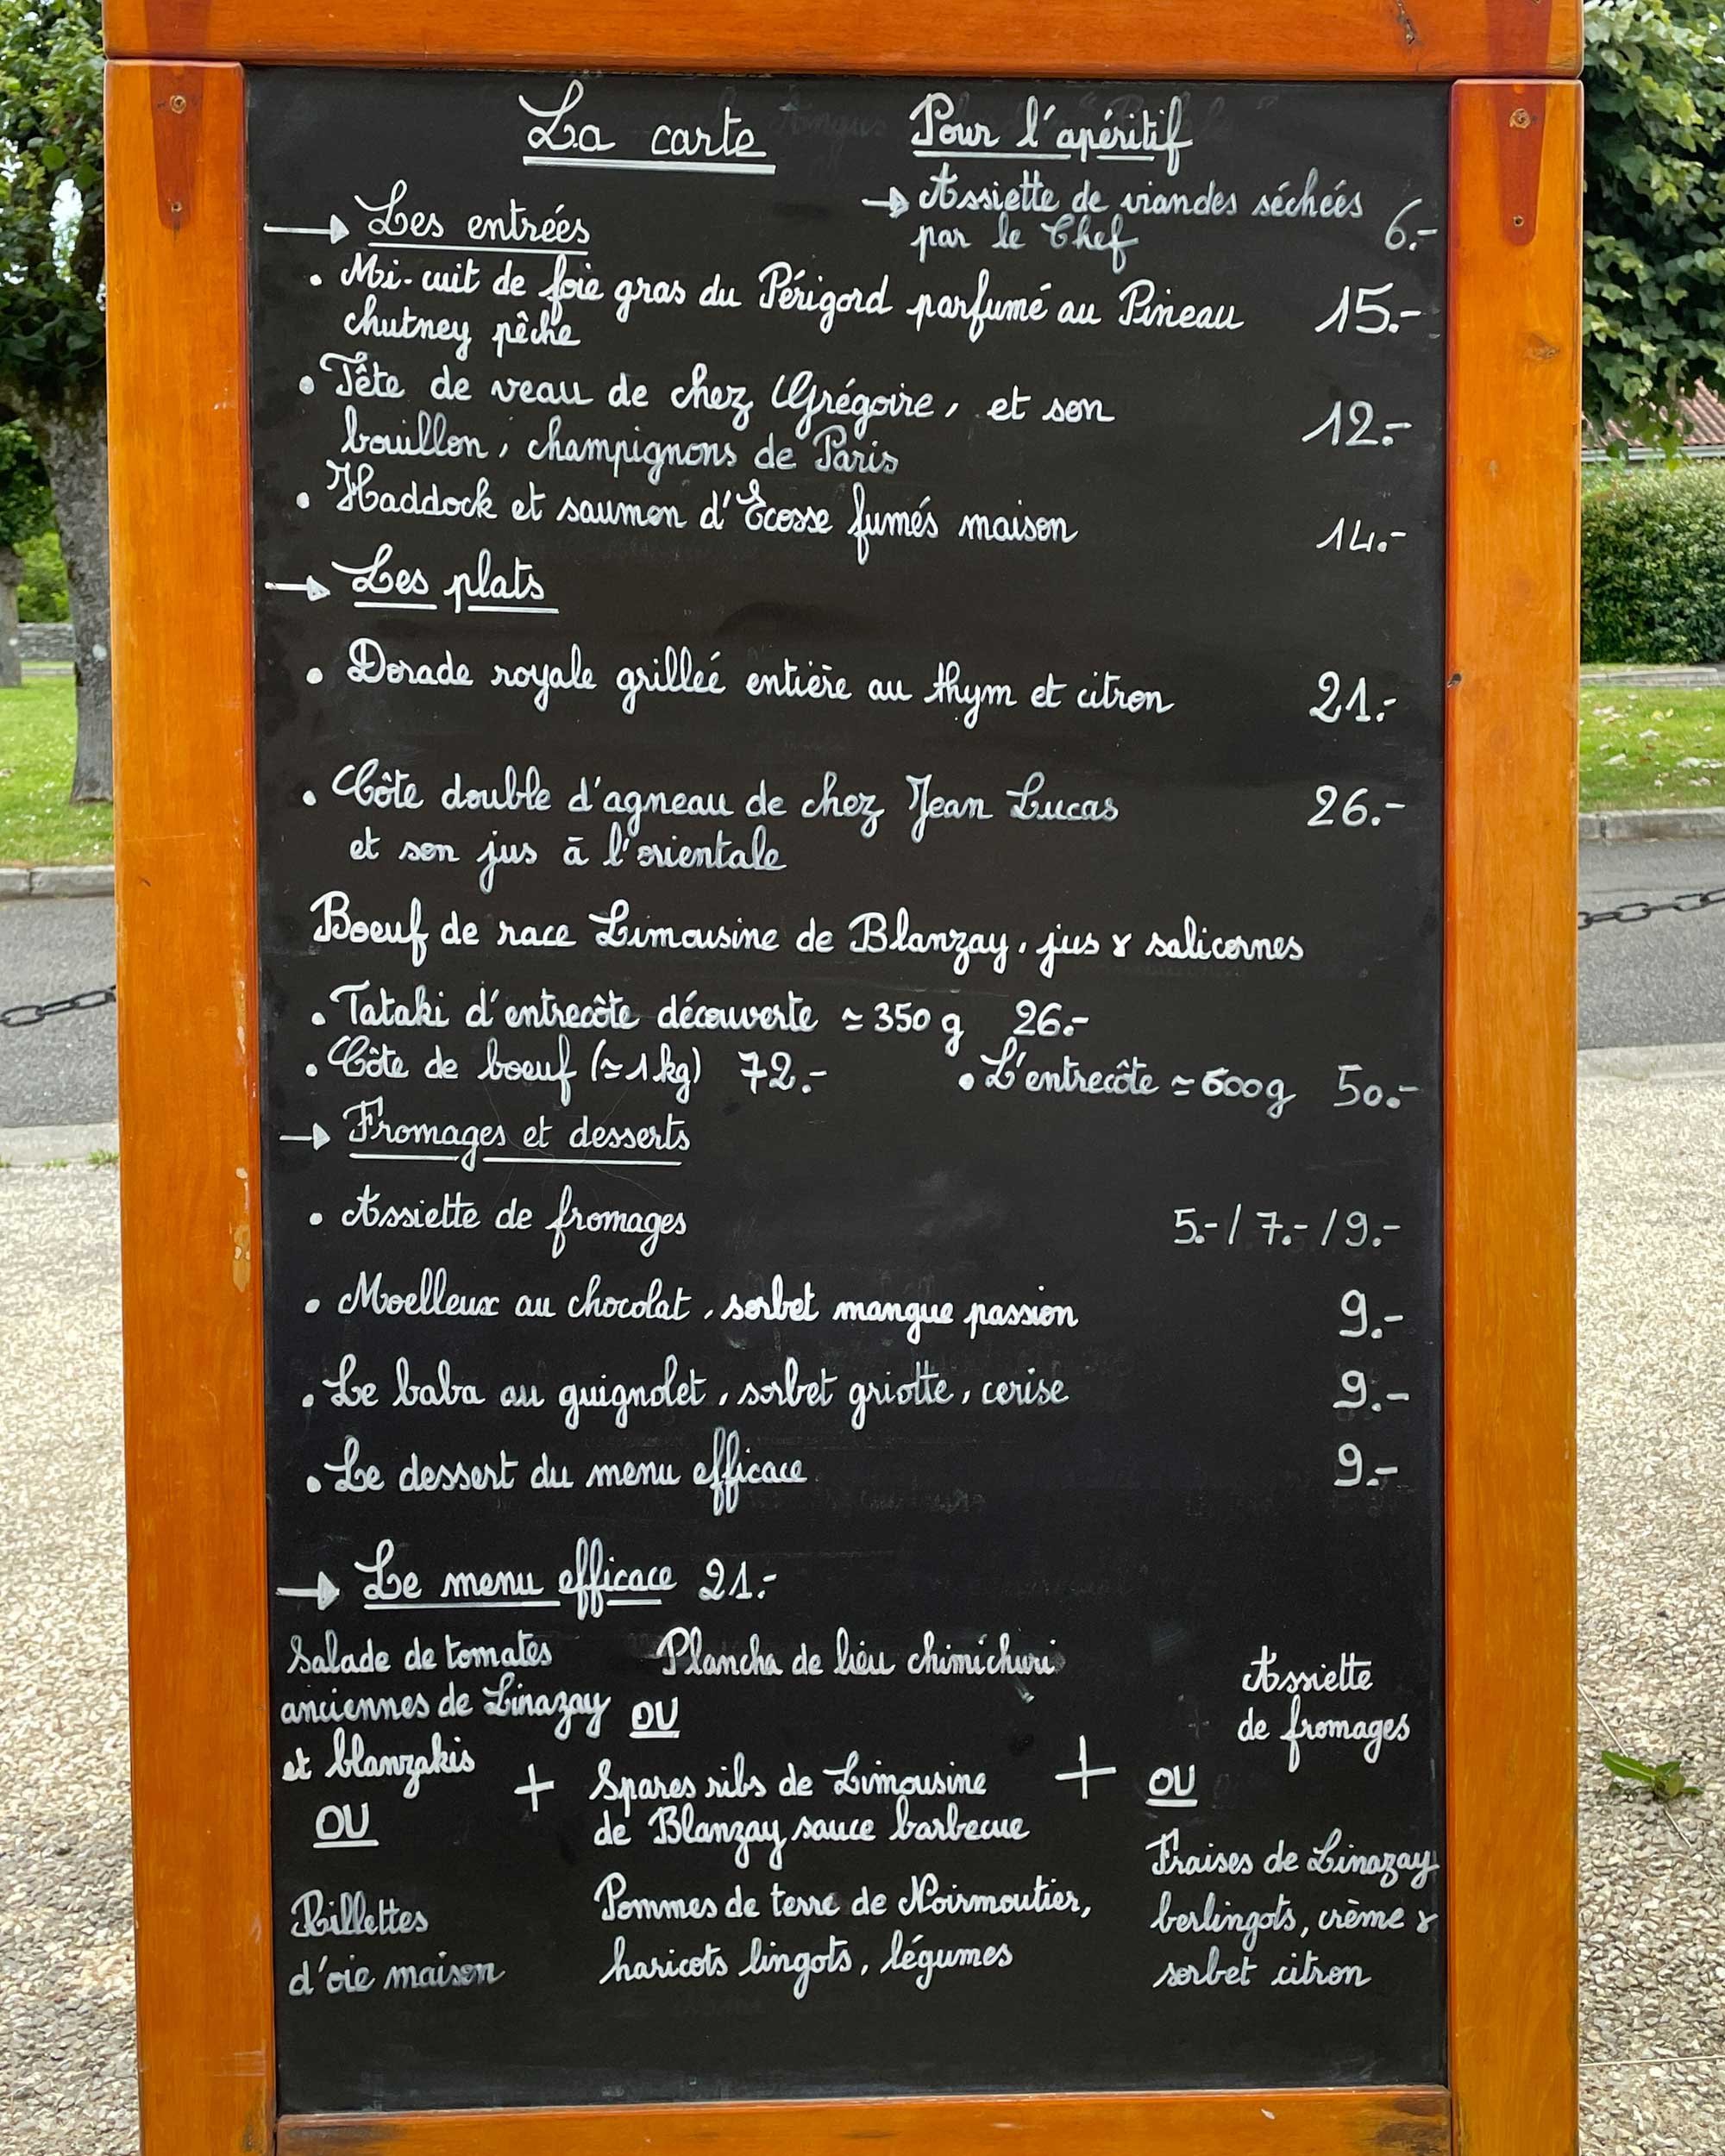 La carte
Pour l'apéritif
→ Assiette de viandes séchées
par le Chef 6.-
→ Les entrées
• Mi-cuit de foie gras du Périgord parfumé au Pineau 15.-
chutney pêche
• Tête de veau de chez Grégoire, et son 12.-
bouillon, champignons de Paris
• Haddock et saumon d'Ecosse fumés maison 14.-
→ Les plats
• Dorade royale grilleé entière au thym et citron 21.-
• Côte double d'agneau de chez Jean Lucas 26.-
et son jus à l'orientale
Boeuf de race Limousine de Blanzay, jus & salicornes
• Tataki d'entrecôte découverte ≃ 350 g 26.-
• Côte de boeuf (≃ 1 kg) 72.- • L'entrecôte ≃ 600g 50.-
→ Fromages et desserts
• Assiette de fromages 5.- / 7.- / 9.-
• Moelleux au chocolat, sorbet mangue passion 9.-
• Le baba au guignolet, sorbet griotte, cerise 9.-
• Le dessert du menu efficace 9.-
→ Le menu efficace 21.-
Salade de tomates
anciennes de Linazay
et blanzakis
OU
Rillettes
d'oie maison
+
Plancha de lieu chimichuri
OU
Spares ribs de Limousine
de Blanzay sauce barbecue
Pommes de terre de Noirmoutier,
haricots lingots, légumes
+
Assiette
de fromages
OU
Fraises de Linazay
berlingots, crème &
sorbet citron